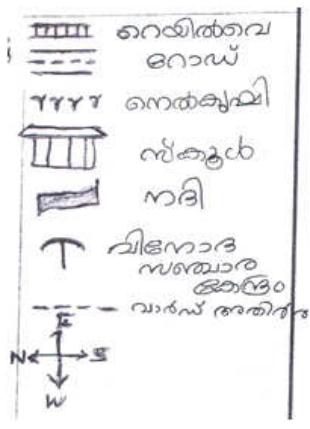 റെയിൽവെ
റോഡ്
നെൽകൃഷി
സ്ക്കൂൾ
നദി
വിനോദ
സഞ്ചാര
കേന്ദ്രം
വാർഡ് അതിർത്തി
E
N S
W